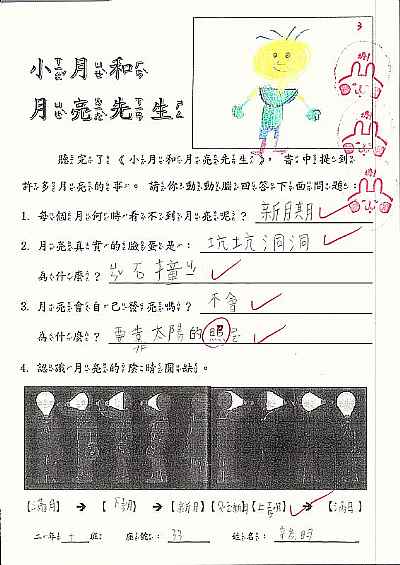 3
小月和
月亮先生
聽完了《小月和月亮先生》，書中提到
許多月亮的事。請你動動腦回答下面問題：
1. 每個月何時看不到月亮呢？ 新月期
2. 月亮真實的臉蛋是： 坑坑洞洞
為什麼？ 石撞
3. 月亮會自己發亮嗎？ 不會
為什麼？ 要靠太陽的照
4. 認識月亮的陰晴圓缺。
【滿月】→【下弦月】→【新月】【上弦月】→【滿月】
二年 班 座號： 33 姓名：